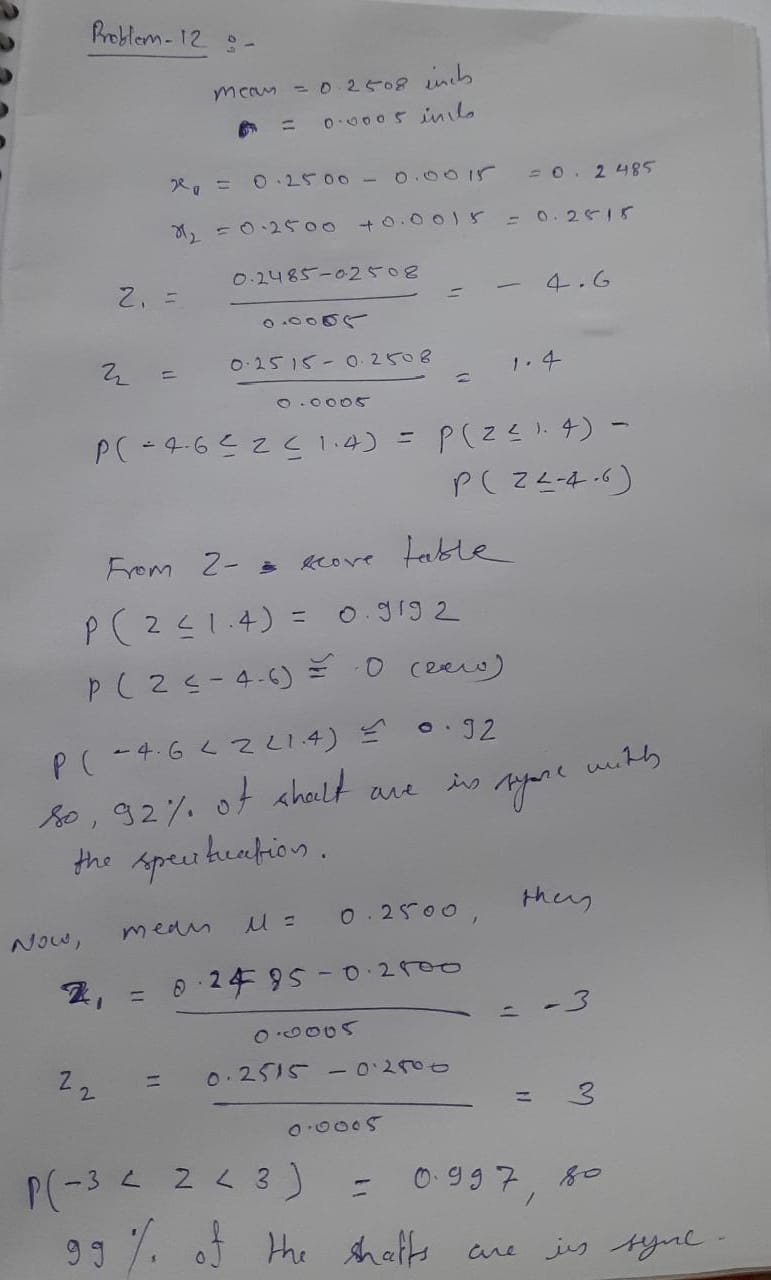 Problem-12 :-
mean = 0.2508 inch
= 0.0005 inch
x₁ = 0.2500 - 0.0015 = 0.2485
x₂ = 0.2500 + 0.0015 = 0.2515
Z₁ = 0.2485-0.2508 / 0.0005 = - 4.6
Z₂ = 0.2515 - 0.2508 / 0.0005 = 1.4
P(-4.6 ≤ Z ≤ 1.4) = P(Z ≤ 1.4) -
P(Z ≤ -4.6)
From Z- score table
P(Z ≤ 1.4) = 0.9192
P(Z ≤ -4.6) ≅ 0 (zero)
P(-4.6 < Z < 1.4) ≅ 0.92
So, 92% of shaft are in sync with
the specification.
Now, mean μ = 0.2500, then
Z₁ = 0.2485-0.2500 / 0.0005 = -3
Z₂ = 0.2515 - 0.2500 / 0.0005 = 3
P(-3 < Z < 3) = 0.997, so
99% of the shafts are in sync.